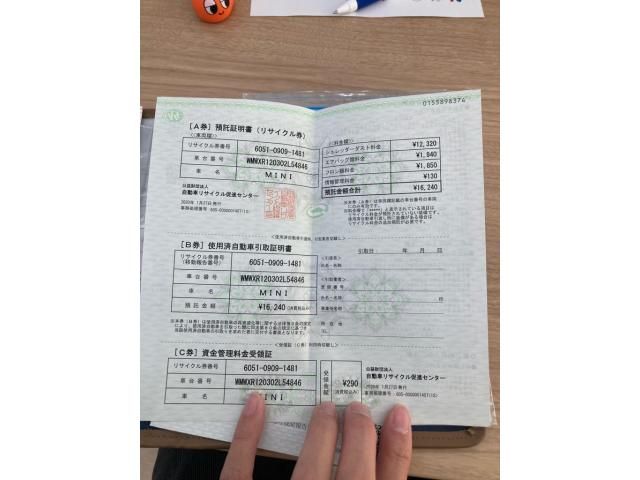 0155898374
[A券] 預託証明書(リサイクル券)
リサイクル券番号 6051-0909-1481
車台番号 WMWXR120302L54846
車名 MINI
公益財団法人
自動車リサイクル促進センター
2020年 1月27日 発行
<料金欄>
シュレッダーダスト料金 ¥12,320
エアバッグ類料金 ¥1,940
フロン類料金 ¥1,850
情報管理料金 ¥130
預託金額合計 ¥16,240
[B券] 使用済自動車引取証明書
リサイクル券番号
(移動報告番号) 6051-0909-1481
車台番号 WMWXR120302L54846
車名 MINI
預託金額 ¥16,240 (消費税込み)
引取日 年 月 日
氏名・名称
登録番号
氏名・名称 印
所在地
TEL
[C券] 資金管理料金受領証
リサイクル券番号 6051-0909-1481
車台番号 WMWXR120302L54846
車名 MINI
受領金額 ¥290
(消費税込み)
公益財団法人
自動車リサイクル促進センター
2020年 1月27日 発行